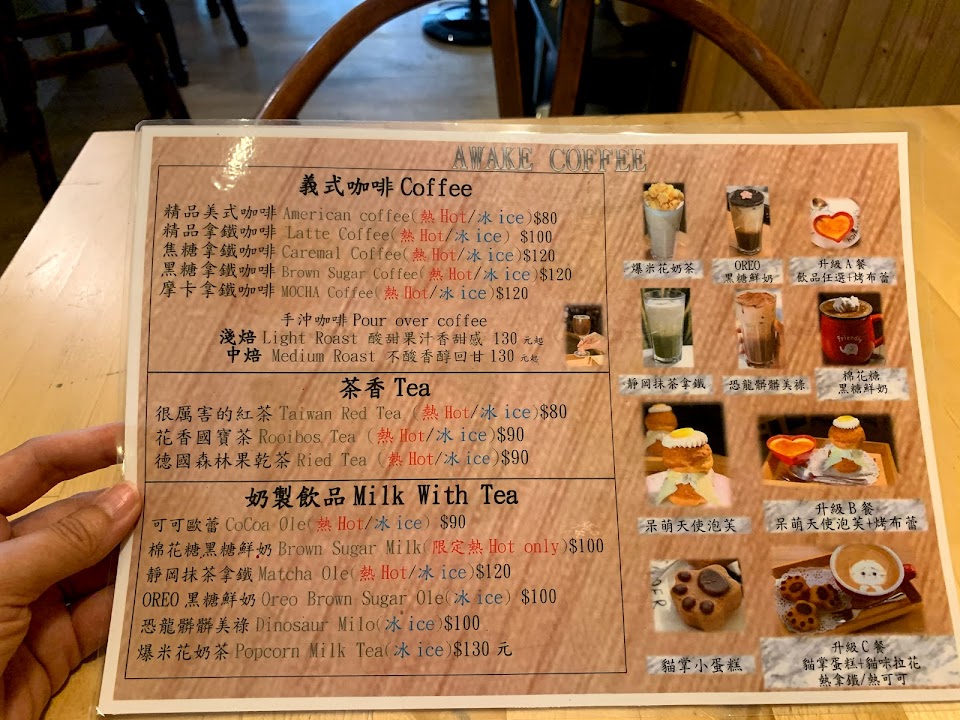 AWAKE COFFEE
義式咖啡 Coffee
精品美式咖啡 American coffee(熱 Hot/冰 ice)$80
精品拿鐵咖啡 Latte Coffee(熱 Hot/冰 ice) $100
焦糖拿鐵咖啡 Caremal Coffee(熱 Hot/冰 ice)$120
黑糖拿鐵咖啡 Brown Sugar Coffee(熱 Hot/冰 ice)$120
摩卡拿鐵咖啡 MOCHA Coffee(熱 Hot/冰 ice)$120
手沖咖啡 Pour over coffee
淺焙 Light Roast 酸甜果汁香甜感 130 元起
中焙 Medium Roast 不酸香醇回甘 130 元起
茶香 Tea
很厲害的紅茶 Taiwan Red Tea (熱 Hot/冰 ice)$80
花香國寶茶 Rooibos Tea (熱 Hot/冰 ice)$90
德國森林果乾茶 Ried Tea (熱 Hot/冰 ice)$90
奶製飲品 Milk With Tea
可可歐蕾 CoCoa Ole(熱 Hot/冰 ice) $90
棉花糖黑糖鮮奶 Brown Sugar Milk(限定熱 Hot only)$100
靜岡抹茶拿鐵 Matcha Ole(熱 Hot/冰 ice)$120
OREO 黑糖鮮奶 Oreo Brown Sugar Ole(冰 ice) $100
恐龍髒髒美祿 Dinosaur Milo(冰 ice)$100
爆米花奶茶 Popcorn Milk Tea(冰 ice)$130 元
爆米花奶茶
OREO
黑糖鮮奶
升級 A 餐
飲品任選+烤布蕾
靜岡抹茶拿鐵
恐龍髒髒美祿
friendly
棉花糖
黑糖鮮奶
呆萌天使泡芙
升級 B 餐
呆萌天使泡芙+烤布蕾
貓掌小蛋糕
升級 C 餐
貓掌蛋糕+貓咪拉花
熱拿鐵/熱可可